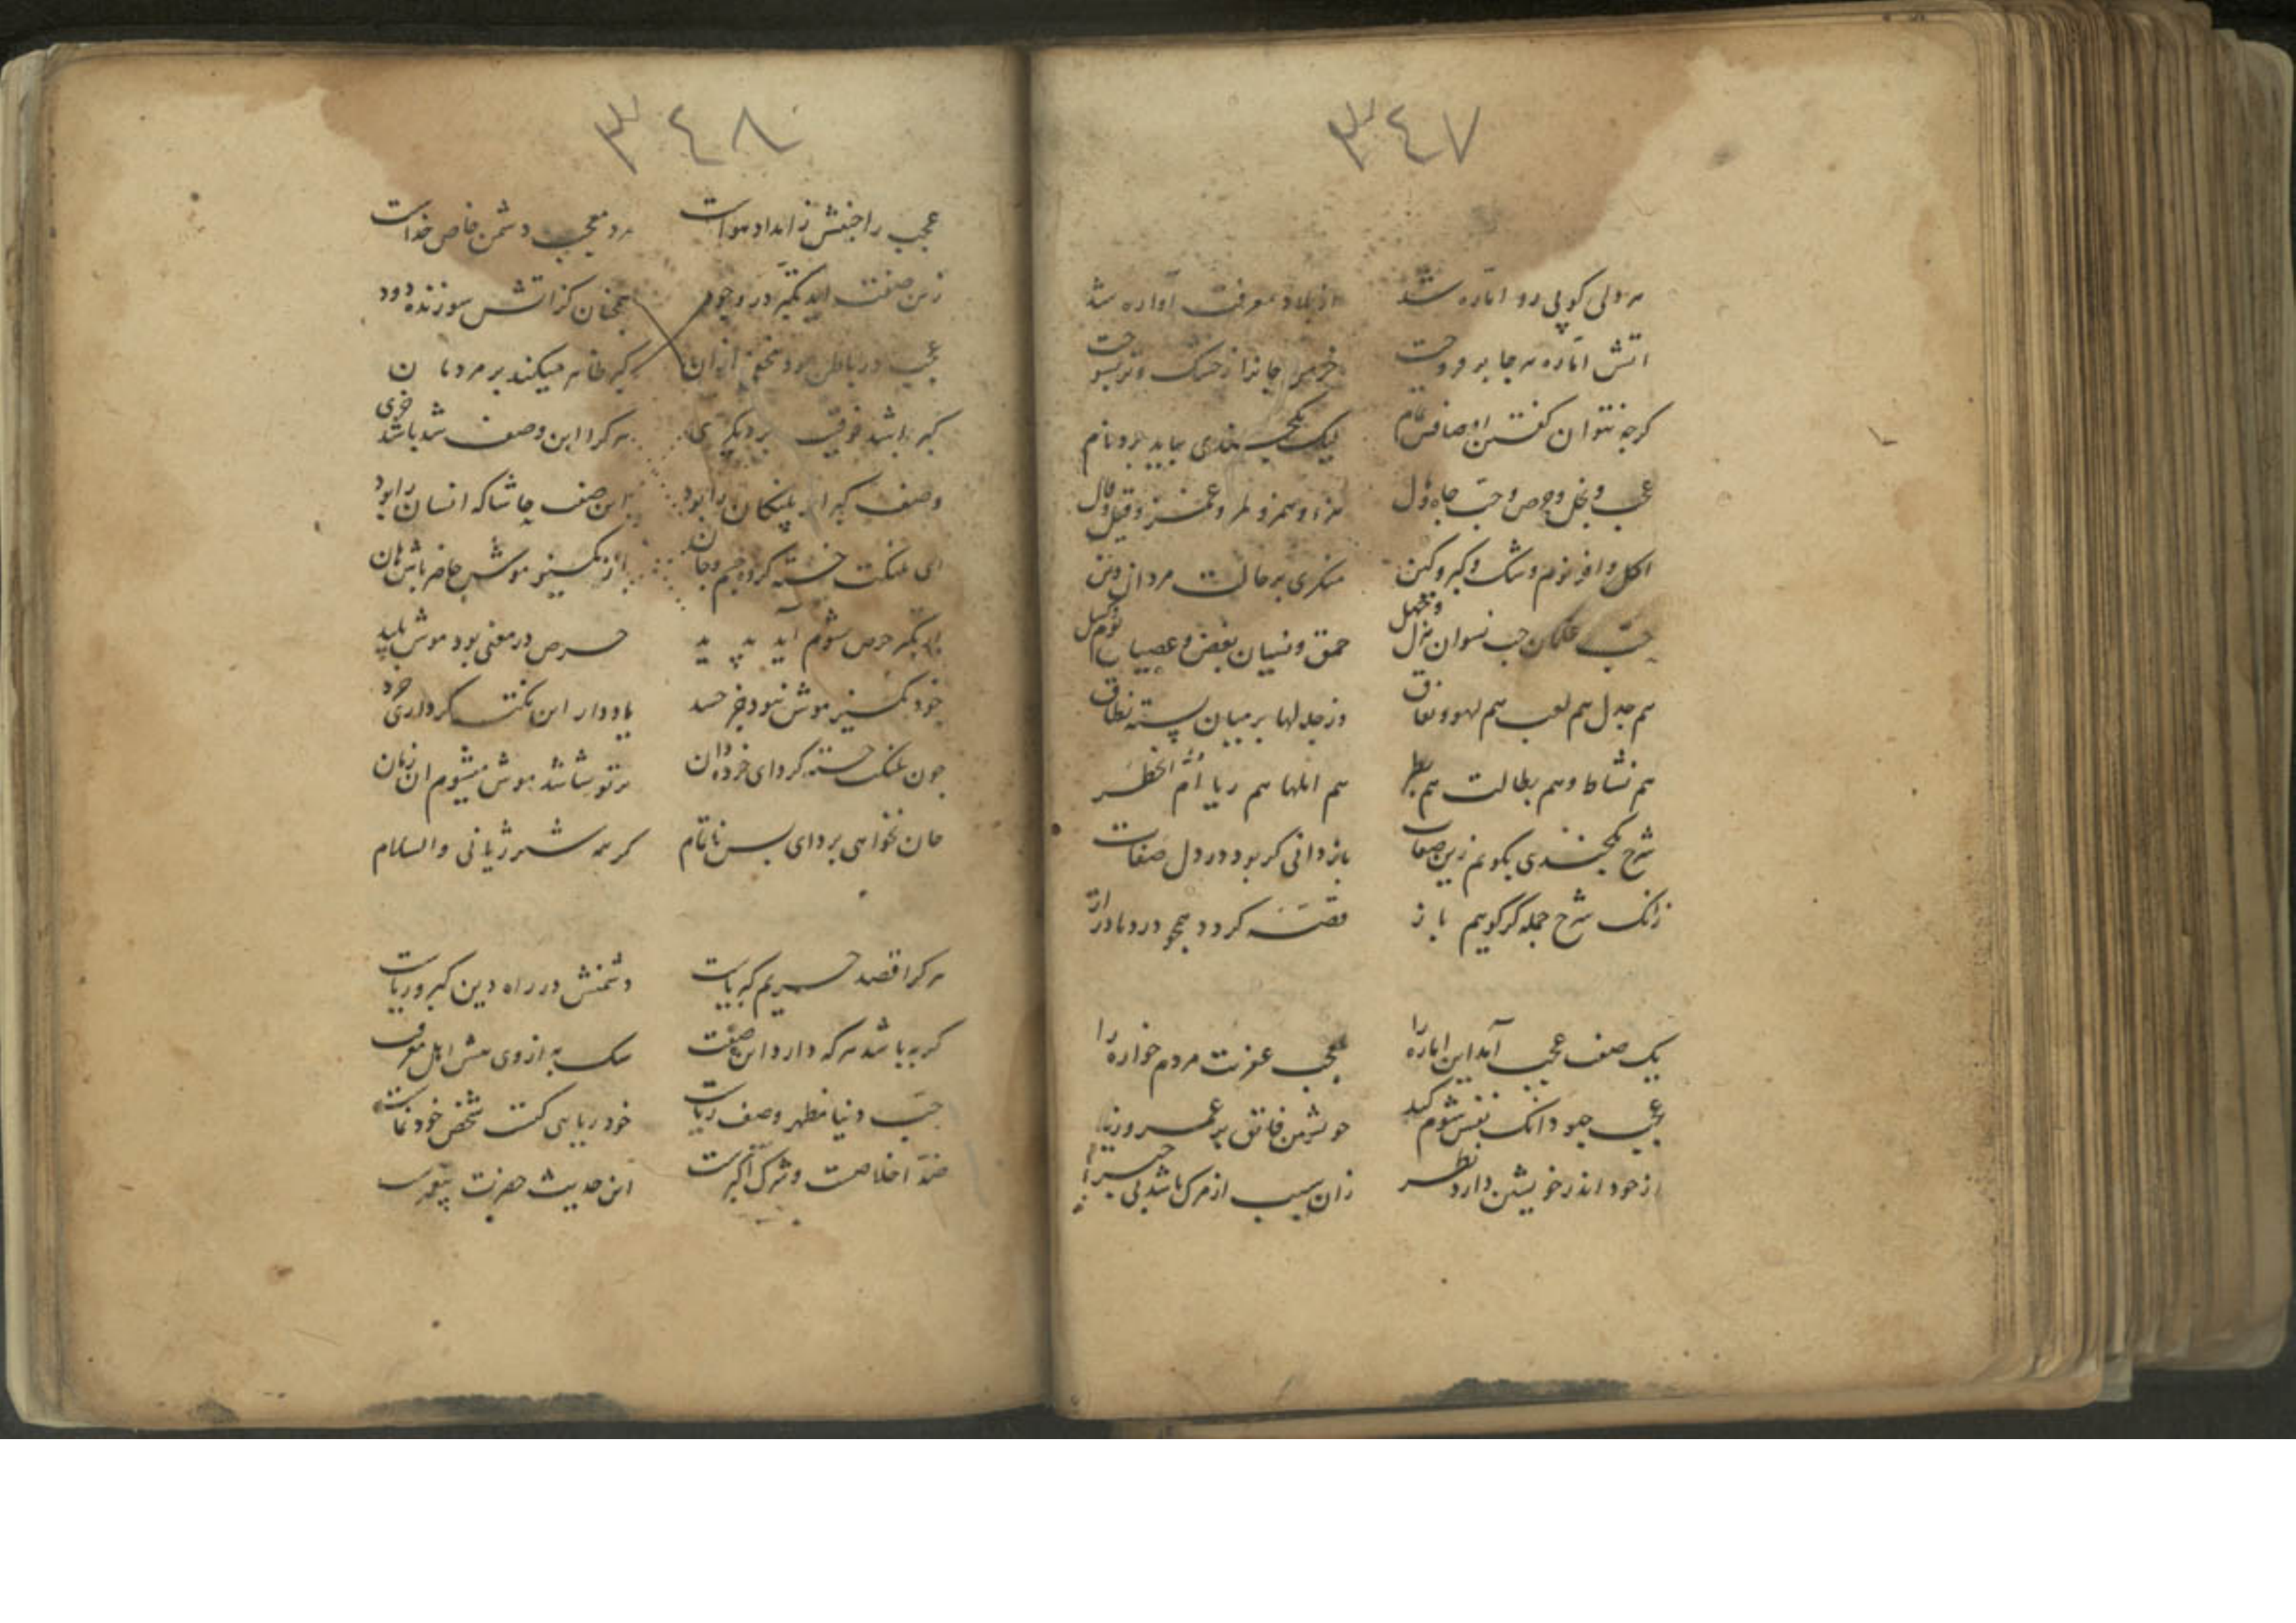 ٣٤٧
هر دلی کو پی رو اماره شد از بلاد معرفت آواره شد
آتش اماره هر جا بر فروخت خرمن جانرا ز خشک و تر بسوخت
کرچه نتوان کفتن اوصافش تمام لیک یکچندی بباید برد نام
عجب و بخل و حرص و حب جاه و مال و قیل و قال
اکل وافر نوم و شک و کبر و کین منکری بر حالت مردان دین
حب نسوان هزل و جهل حمق و نسیان بغض و عصیان
هم جدل هم لعب هم لهو و نفاق وز جدلها بر میان بسته نطاق
هم نشاط و هم بطالت هم بطر هم ریا ام الخطر
شرح یکچندی بکویم زین صفات باز دانی کر بود در دل صفات
زانک شرح جمله کر کویم باز قصه کردد همچو درد ما دراز
یک صفت عجب آمد این اماره را عجب عزت مردم خواره را
عجب چبود آنک نفس شوم کید خویشتن فائق به عمرو و زید
از خود اندر خویشتن دارد نظر زان سبب از مرک باشد بی خبر
٣٤٨
عجب را جنبش ز امداد هواست مرد معجب دشمن خاص خداست
زین صفت آید تکبر در وجود همچنان کز آتش سوزنده دود
عجب در باطن بود مخفی از آن کبر ظاهر میکند بر مردمان
کبر باشد فوقیت بر دیکری هر کرا این وصف شد باشد خری
وصف کبر ای پلنکان را بود این صفت حاشا که انسان را بود
ای پلنکت خسته کرده جسم و جان از کمیز موش حاضر باش هان
از تکبر حرص شوم آید پدید حرص در معنی بود موش پلید
خود کمیز موش نبود جز حسد یاد دار این نکته کر داری خرد
چون پلنکت خسته کرد ای خرده دان بر تو شاشد موش میشوم آن زمان
جان نخواهی برد ای بس ناتمام کر همه شیر ژیانی والسلام
هر کرا قصد حریم کبریاست دشمنش در راه دین کبر و ریاست
کربه باشد هر که دارد این صفت سک به از وی پیش اهل معرفت
حب دنیا مظهر وصف ریاست خود ریا می کفت شخص خود نماست
ضد اخلاصست و شرک اکبرست این حدیث حضرت پیغمبرست